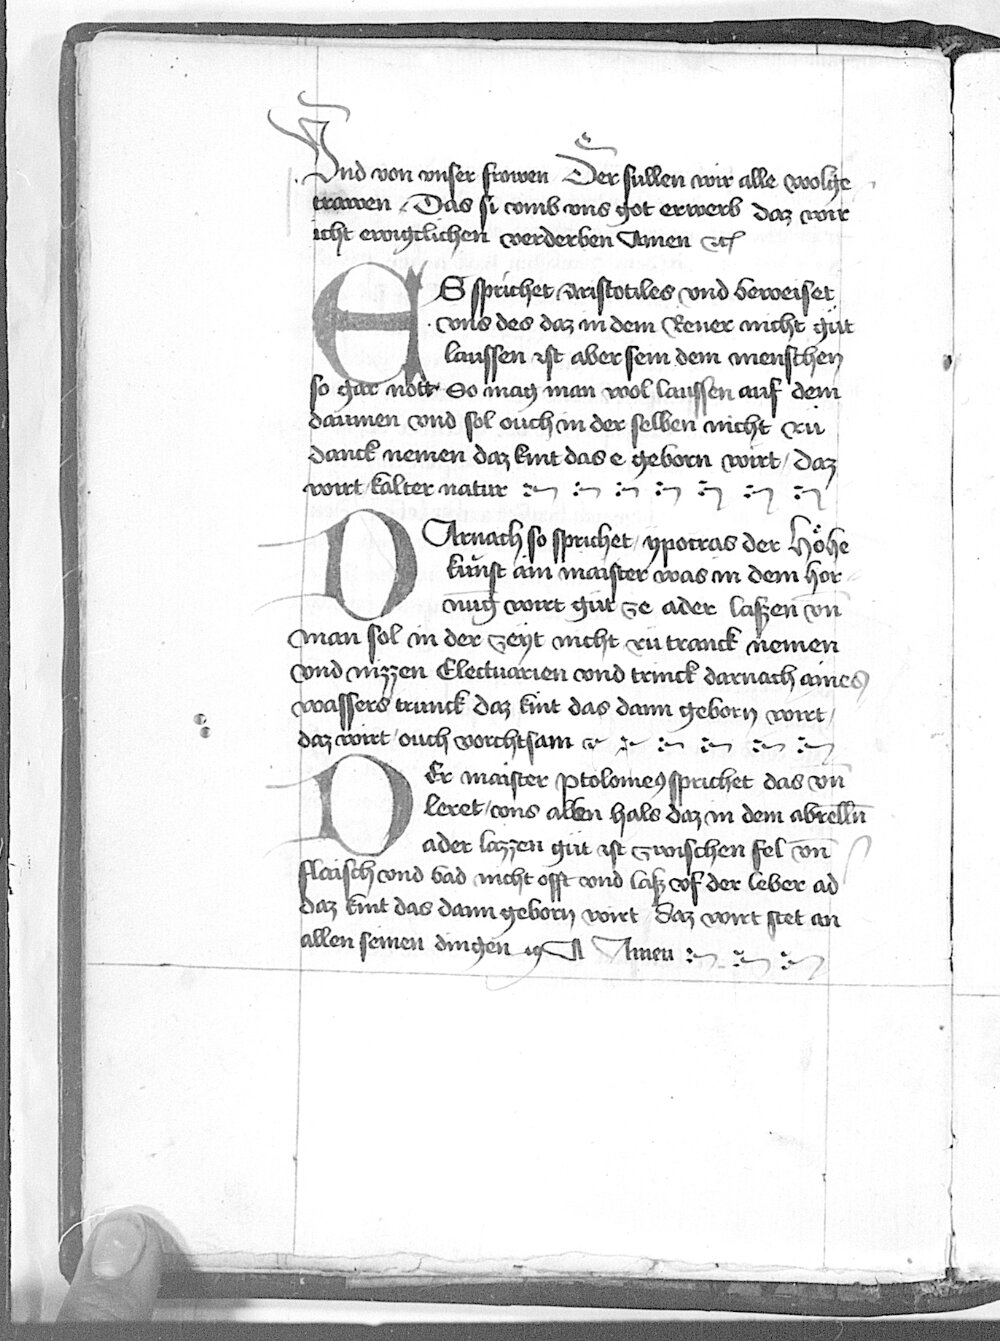 Vnd von vnser frowen Der sullen wir alle wolge
trawen / Das si vmb vns got erwerb daz wir
icht ewigclichen verderben Amen etc
ES sprichet Aristotiles vnd beweiset
vns des daz in dem Rener nicht gůt
laussen ist aber sein dem menschen
so gar nott So mag man wol laussen auf dem
daumen vnd sol ouch in der selben nicht zů
danck nemen daz kint das e geborn wirt / daz
wirt kalter natur
DArnach so sprichet / ypocras der Höhe
kunst ain maister was in dem hor
nug wirt gůt ze ader laszen vn̄
man sol in der zeyt nicht zů tranck nemen
vnd nizzen Electuarien vnd trinck darnach aines
wassers trunck daz kint das dann geborn wirt /
daz wirt / ouch vorchtsam
DEr maister Ptolomeꝰ sprichet das vn̄
leret / vns allen hals daz in dem abrelln̄
ader lazzen gůt ist zwischen fel vn̄
flaisch vnd bad nicht offt vnd lasz vf der leber ad
daz kint das dann geborn wirt daz wirt stet an
allen seinen dingen Amen